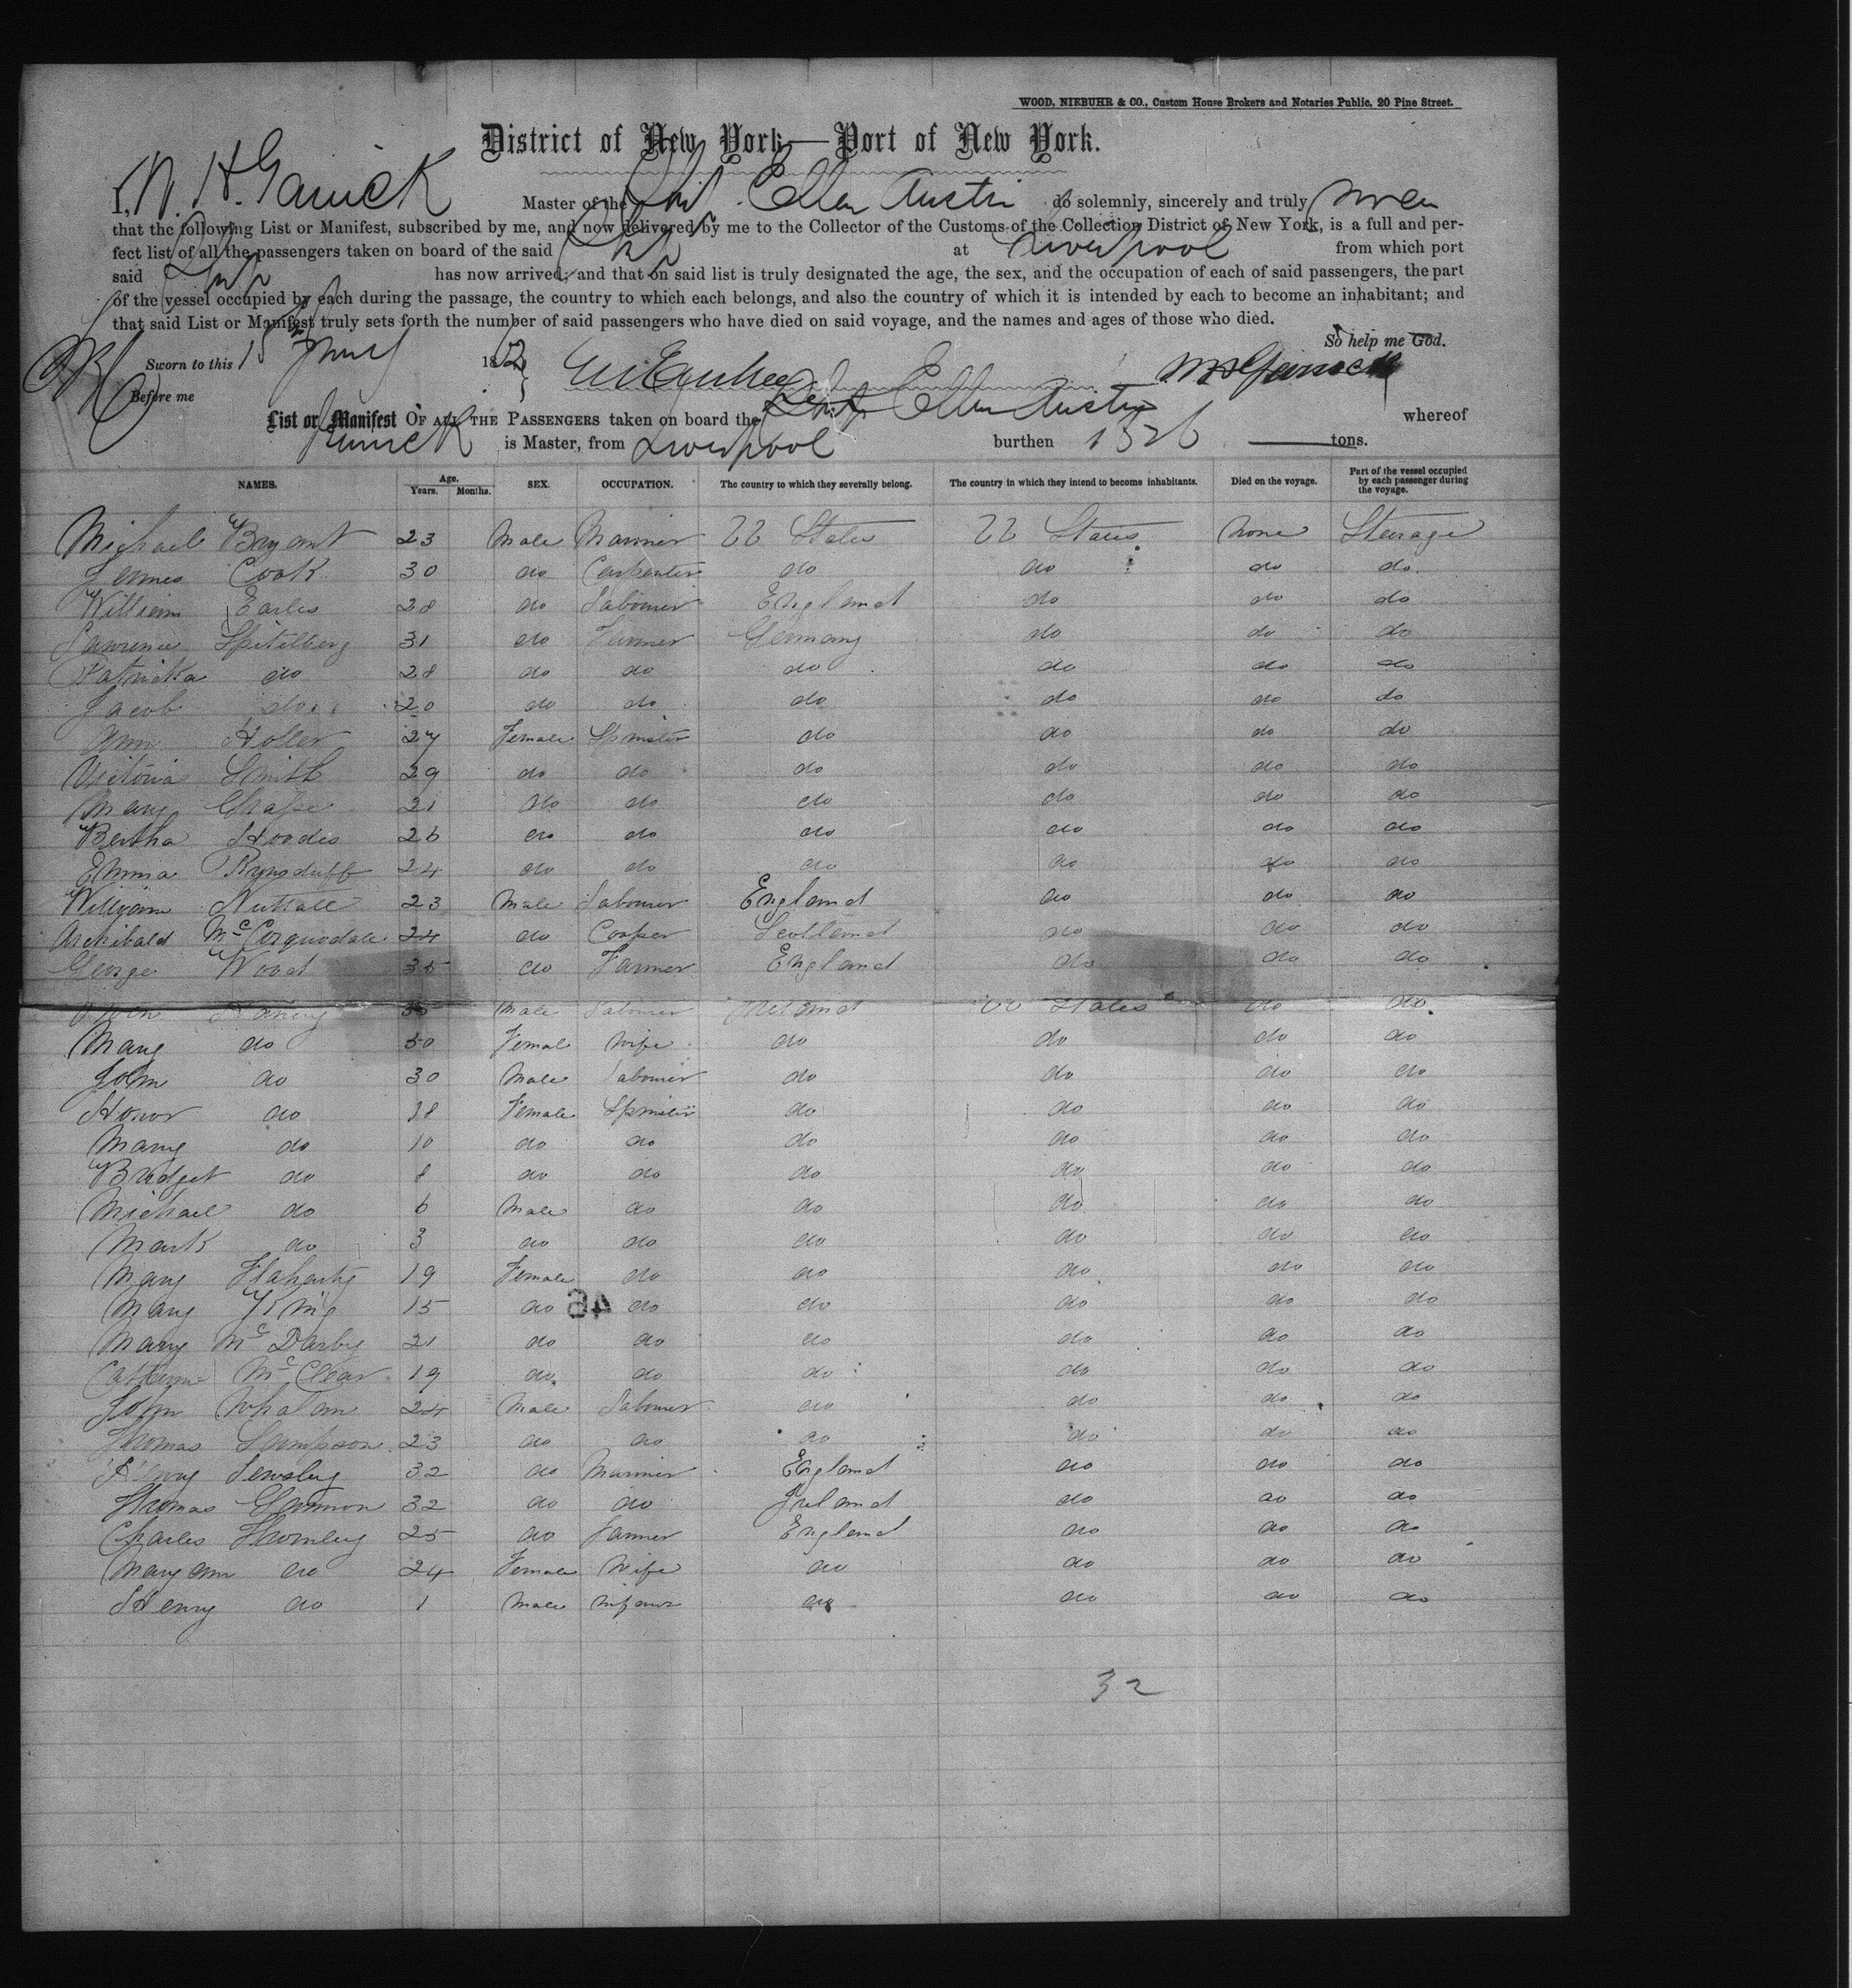 WOOD, NIEBUHR & CO., Custom House Brokers and Notaries Public, 20 Pine Street.
District of New York—Port of New York.
I, Master of the Ship Ellen Austin do solemnly, sincerely and truly swear
that the following List or Manifest, subscribed by me, and now delivered by me to the Collector of the Customs of the Collection District of New York, is a full and per-
fect list of all the passengers taken on board of the said Ship at Liverpool from which port
said Ship has now arrived; and that on said list is truly designated the age, the sex, and the occupation of each of said passengers, the part
of the vessel occupied by each during the passage, the country to which each belongs, and also the country of which it is intended by each to become an inhabitant; and
that said List or Manifest truly sets forth the number of said passengers who have died on said voyage, and the names and ages of those who died.
So help me God.
Sworn to this 15 18
Before me
List or Manifest OF ALL THE PASSENGERS taken on board the Ship Ellen Austin whereof
is Master, from Liverpool burthen tons.
NAMES. Age. Years. Months. SEX. OCCUPATION. The country to which they severally belong. The country in which they intend to become inhabitants. Died on the voyage. Part of the vessel occupied by each passenger during the voyage.
Michael Bryant 23 Male Mariner U States U States None Steerage
James Cook 30 do Carpenter do do do do
William Earles 28 do Labourer England do do do
Lawrence Spitelberg 31 do Farmer Germany do do do
do 28 do do do do do do
Jacob do 20 do do do do do do
Ann Holler 27 Female Spinster do do do do
Victoria Smith 29 do do do do do do
Mary 21 do do do do do do
Bertha Hoodis 26 do do do do do do
Emma 24 do do do do do do
William Nuttall 23 Male Labourer England do do do
Archibald McCorquodale 24 do Cooper Scotland do do do
George Wood 35 do Farmer England do do do
Male Labourer Ireland States do do
Mary do 50 Female Wife do do do do
John do 30 Male Labourer do do do do
Honor do 18 Female Spinster do do do do
Mary do 10 do do do do do do
Bridget do 8 do do do do do do
Michael do 6 Male do do do do do
Mark do 3 do do do do do do
Mary Flaherty 19 Female do do do do do
Mary King 15 do do do do do do
46
Mary McDarby 21 do do do do do do
Catherine McClear 19 do do do do do do
John Whalam 24 Male Labourer do do do do
Thomas Sampson 23 do do do do do do
Henry 32 do Mariner England do do do
Thomas Gannon 32 do do Ireland do do do
Charles Thornley 25 do Farmer England do do do
Mary ann do 24 Female Wife do do do do
Henry do 1 Male infant do do do do
32